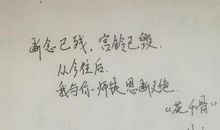 断念已残，宫铃已毁
从今往后
我与你师徒恩断义绝
《花千骨》